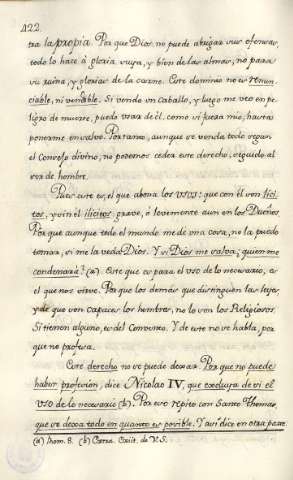 422.
tra la propia. Por que Dios no puede abrigar sus ofensas,
todo lo hace à gloria suya, y bien de las almas, no para
su ruina, y glorias de la carne. Este dominio no es renun-
ciable, ni vendible. Si vendo un Caballo, y luego me veo en pe-
ligro de muerte, puedo usar de èl como si fuera mio, hasta
ponerme en salvo. Por tanto, aunque se venda todo segun
el Consejo divino, no podemos ceder este derecho, seguido al
ser de hombre.
Pues este es, el que abona los usos: que con èl son lici-
tos, y sin èl ilicitos, grave, ò levemente aun en los Dueños
Por que aunque todo el mundo me dè una cosa, no la puedo
tomar, si me la veda Dios. Y si Dios me salva; quien me
condenarà? (a). Este que es para el uso de lo necesario, es
el que nos sirve. Por que los demàs que distinguen las leyes
y de que son capaces los hombres, no lo son los Religiosos.
Si tienen alguno, es del Convento. Y de este no se habla, por
que no profesa.
Este derecho no se puede dexar. Por que no puede
haber profesion, dice Nicolao IV, que excluya de si el
uso de lo necesario (b). Por eso repito con Santo Thomas,
que se dexa todo en quanto es posible. Y asi dice en otra parte
(a) Rom. 8. (b) Exiit. de V. S.